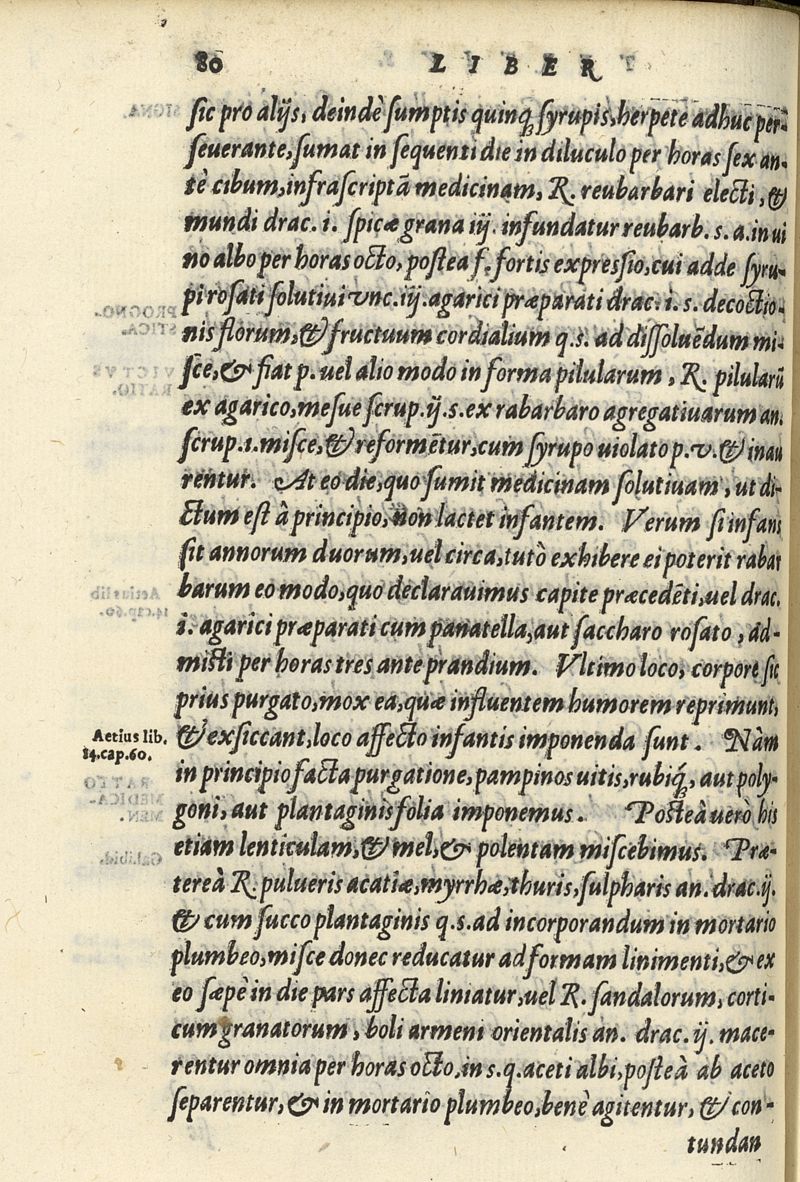 80 LIBER
sic pro alijs, deindè sumptis quinq; syrupis, herpete adhuc per-
seuerante, sumat in sequenti die in diluculo per horas sex an-
tè cibum, infrascriptā medicinam, R. reubarbari electi, &
mundi drac. i. spicæ grana iij. infundatur reubarb. s. a. in ui
no albo per horas octo, postea f. fortis expressio, cui adde syru-
pi rosati solutiui vnc. iij. agarici præparati drac. i. s. decoctio-
nis florum, & fructuum cordialium q.s. ad dissoluēdum mi-
sce, & fiat p. uel alio modo in forma pilularum, R. pilularū
ex agarico, mesue scrup. ij. s. ex rabarbaro agregatiuarum an.
scrup. 1. misce, & reformētur, cum syrupo uiolato p. v. & inau
rentur. At eo die, quo sumit medicinam solutiuam, ut di-
ctum est à principio, non lactet infantem. Verum si infans
sit annorum duorum, uel circa, tutò exhibere ei poterit rabar
barum eo modo, quo declarauimus capite præcedēti, uel drac.
i. agarici præparati cum panatella, aut saccharo rosato, ad-
misti per horas tres ante prandium. Vltimo loco, corpore sic
prius purgato, mox ea, quæ influentem humorem reprimunt,
Aetius lib.
14. cap. 60.
& exsiccant, loco affecto infantis imponenda sunt. Nàm
in principio facta purgatione, pampinos uitis, rubiq́;, aut poly-
goni, aut plantaginis folia imponemus. Posteà uerò his
etiam lenticulam, & mel, & polentam miscebimus. Præ-
tereà R. pulueris acatiæ, myrrhæ, thuris, sulpharis an. drac. ij.
& cum succo plantaginis q.s. ad incorporandum in mortario
plumbeo, misce donec reducatur ad formam linimenti, & ex
eo sæpè in die pars affecta liniatur, uel R. sandalorum, corti-
cum granatorum, boli armeni orientalis an. drac. ij. mace-
rentur omnia per horas octo, in s.q. aceti albi, posteà ab aceto
separentur, & in mortario plumbeo, benè agitentur, & con-
tundan